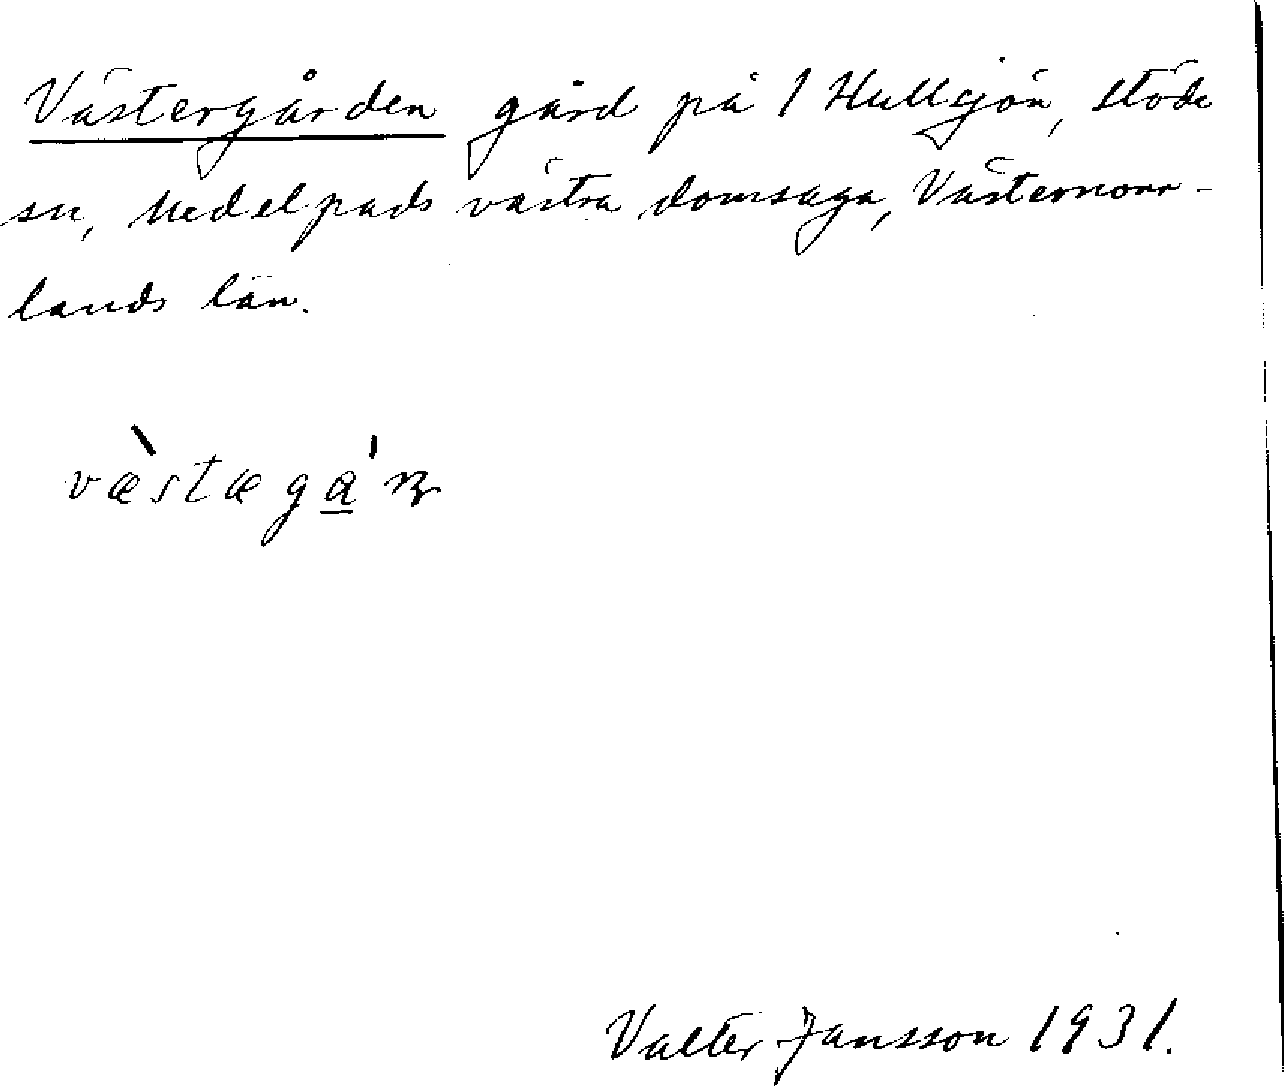 Västergården gård på 1 Hullsjön, Stöde
sn, Medelpads västra domsaga, Västernorr-
lands län.
væ̀stæga̲'n
Valter Jansson 1931.